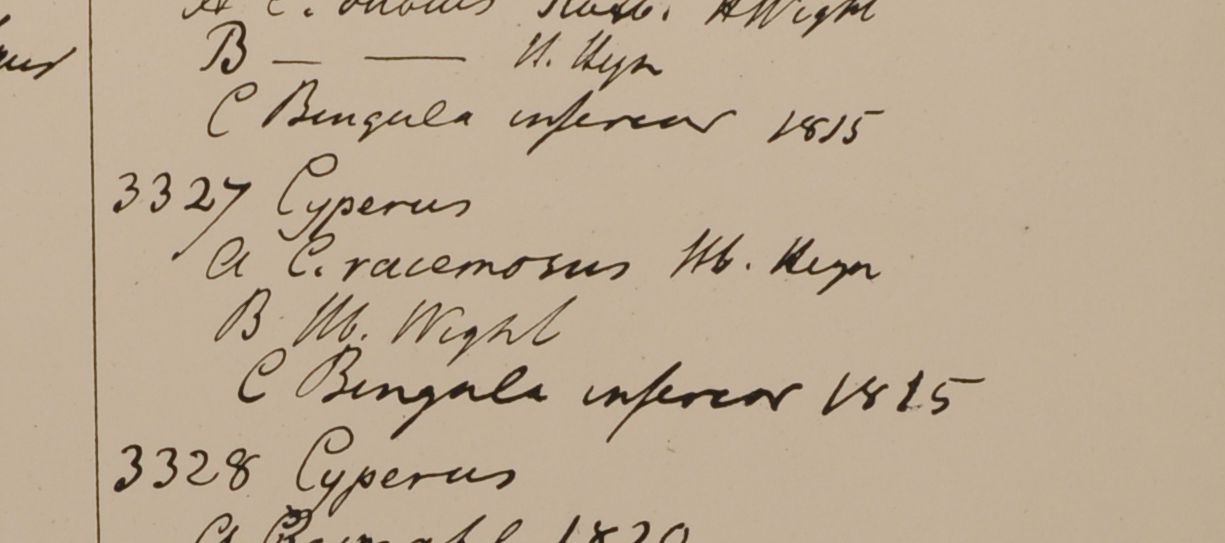 A C. Roxb. H Wight
B — — H. Heyn
C Bengala inferior 1815
3327 Cyperus
a C. racemosus Hb. Heyn
B Hb. Wight
C Bengala inferior 1815
3328 Cyperus
a 1820